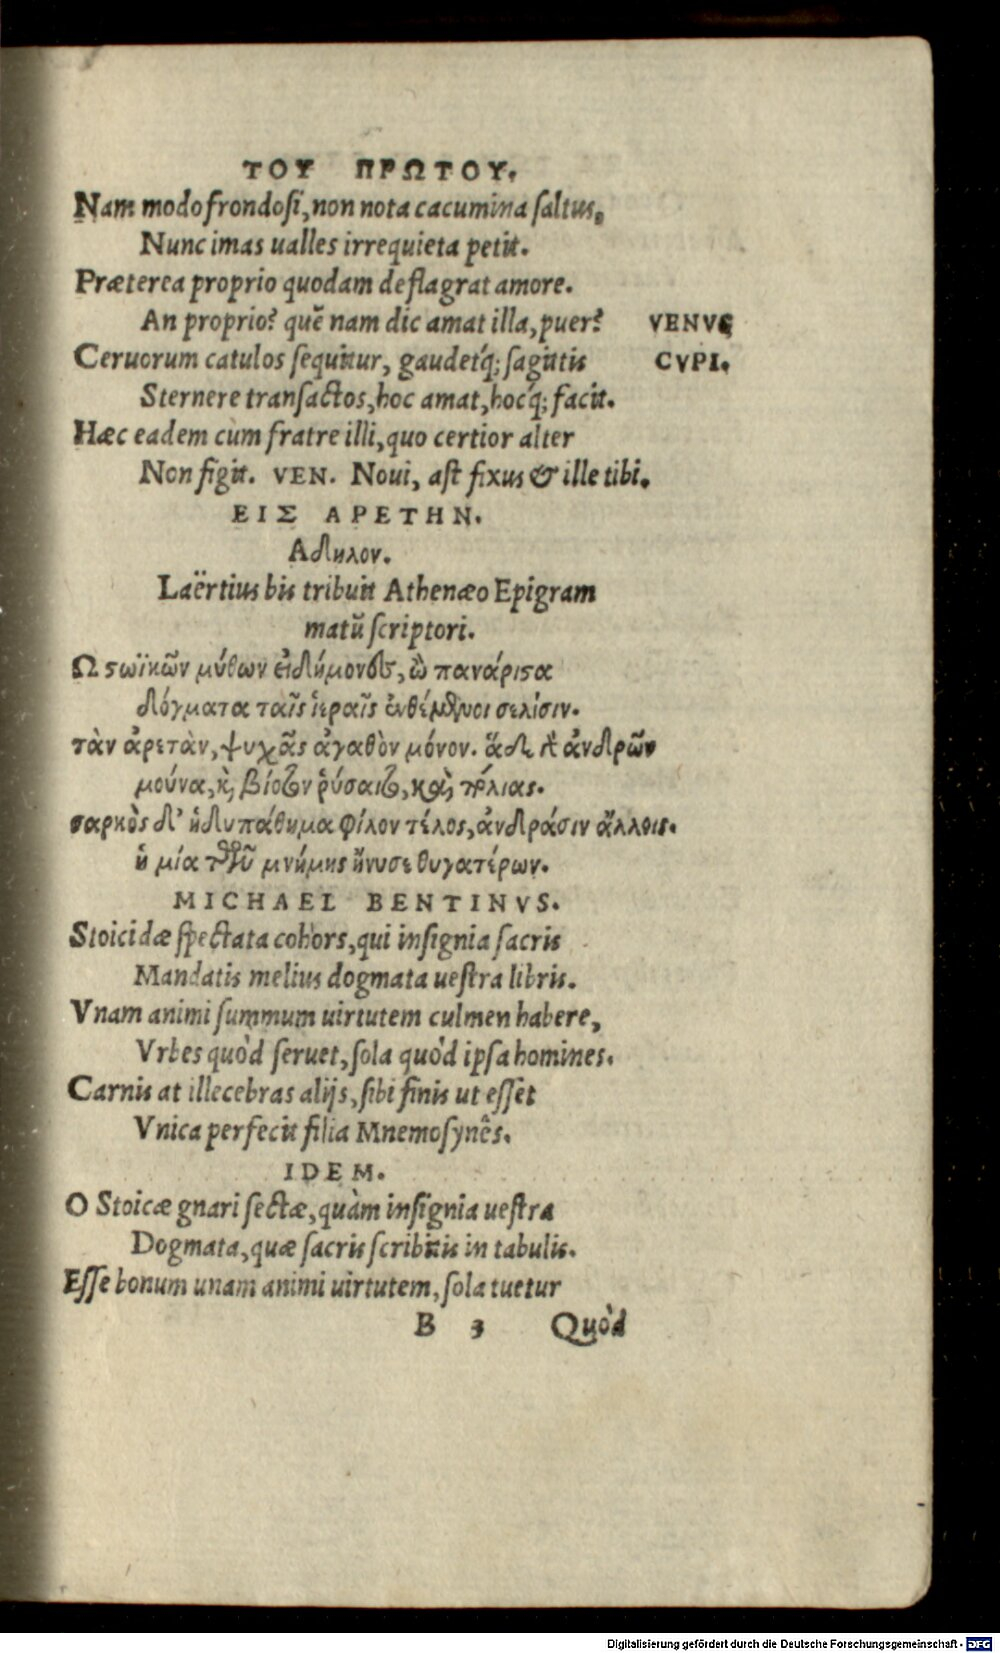 ΤΟΥ ΠΡΩΤΟΥ.
Nam modo frondosi, non nota cacumina saltus,
Nunc imas ualles irrequieta petit.
Præterea proprio quodam deflagrat amore.
An proprio? quē nam dic amat illa, puer? VENVS
Ceruorum catulos sequitur, gaudetq́; sagittis CVPI.
Sternere transactos, hoc amat, hocq́; facit.
Hæc eadem cùm fratre illi, quo certior alter
Non figit. VEN. Noui, ast fixus & ille tibi.
ΕΙΣ ΑΡΕΤΗΝ.
Αδηλον.
Laërtius bis tribuit Athenæo Epigram
matũ scriptori.
Ω ϛωϊκῶν μύθων εἰδήμονες, ὦ πανάριϛα
δόγματα ταῖς ἱεραῖς ἐνθέμενοι σελίσιν.
τὰν ἀρετὰν, ψυχᾶς ἀγαθὸν μόνον. ἅδε γὰρ ἀνδρῶν
μούνα, κỳ βίοτον ῥύσατο, καὶ πόλιας.
σαρκὸς δ' ἡδυπάθημα φίλον τέλος, ἀνδράσιν ἄλλοις.
ἡ μία τῶν μνήμης ἤνυσε θυγατέρων.
MICHAEL BENTINVS.
Stoicidæ spectata cohors, qui insignia sacris
Mandatis melius dogmata uestra libris.
Vnam animi summum uirtutem culmen habere,
Vrbes quòd seruet, sola quòd ipsa homines.
Carnis at illecebras alijs, sibi finis ut esset
Vnica perfecit filia Mnemosynês.
IDEM.
O Stoicæ gnari sectæ, quàm insignia uestra
Dogmata, quæ sacris scribitis in tabulis.
Esse bonum unam animi uirtutem, sola tuetur
B 3 Quòd
Digitalisierung gefördert durch die Deutsche Forschungsgemeinschaft - DFG